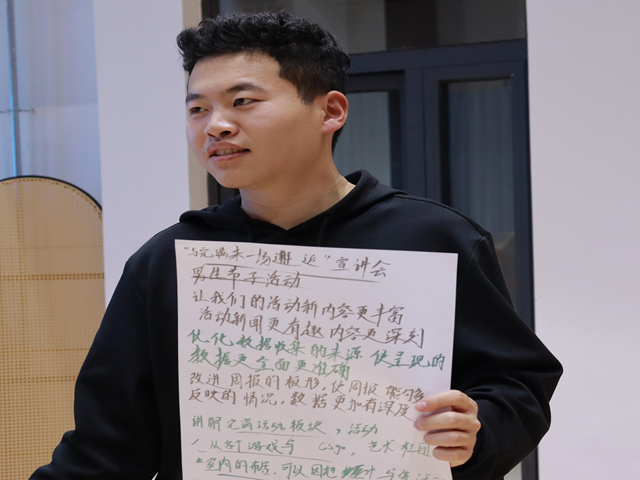 "与完满来一场邂逅"宣讲会
男生节子活动
让我们的活动新内容更丰富
活动新闻更有趣内容更深刻
优化数据收集的来源 使呈现的
数据更全面更准确
改进 周报的板形,使周报 能
反映的情况,数据更加有深度
讲解之前活动板块,活动
从多个游戏与 csgo,艺术
室内的布局,可以因